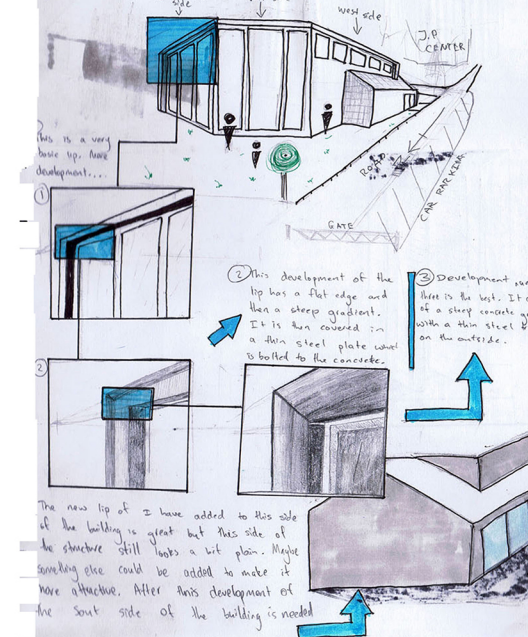 side
west side
J.P
CENTER
ROAD
CAR PARKING
GATE
This is a very
basic lip. More
development....
1
2 This development of the
lip has a flat edge and
then a steep gradient.
It is then covered in
a thin steel plate
is bolted to the concrete.
3 Development
three is the best. It
of a steep concrete
with a thin steel
on the outside.
2
The new lip of I have added to this side
of the building is great but this side of
the structure still looks a bit plain. Maybe
something else could be added to make it
more attractive. After this development of
the sout side of the building is needed